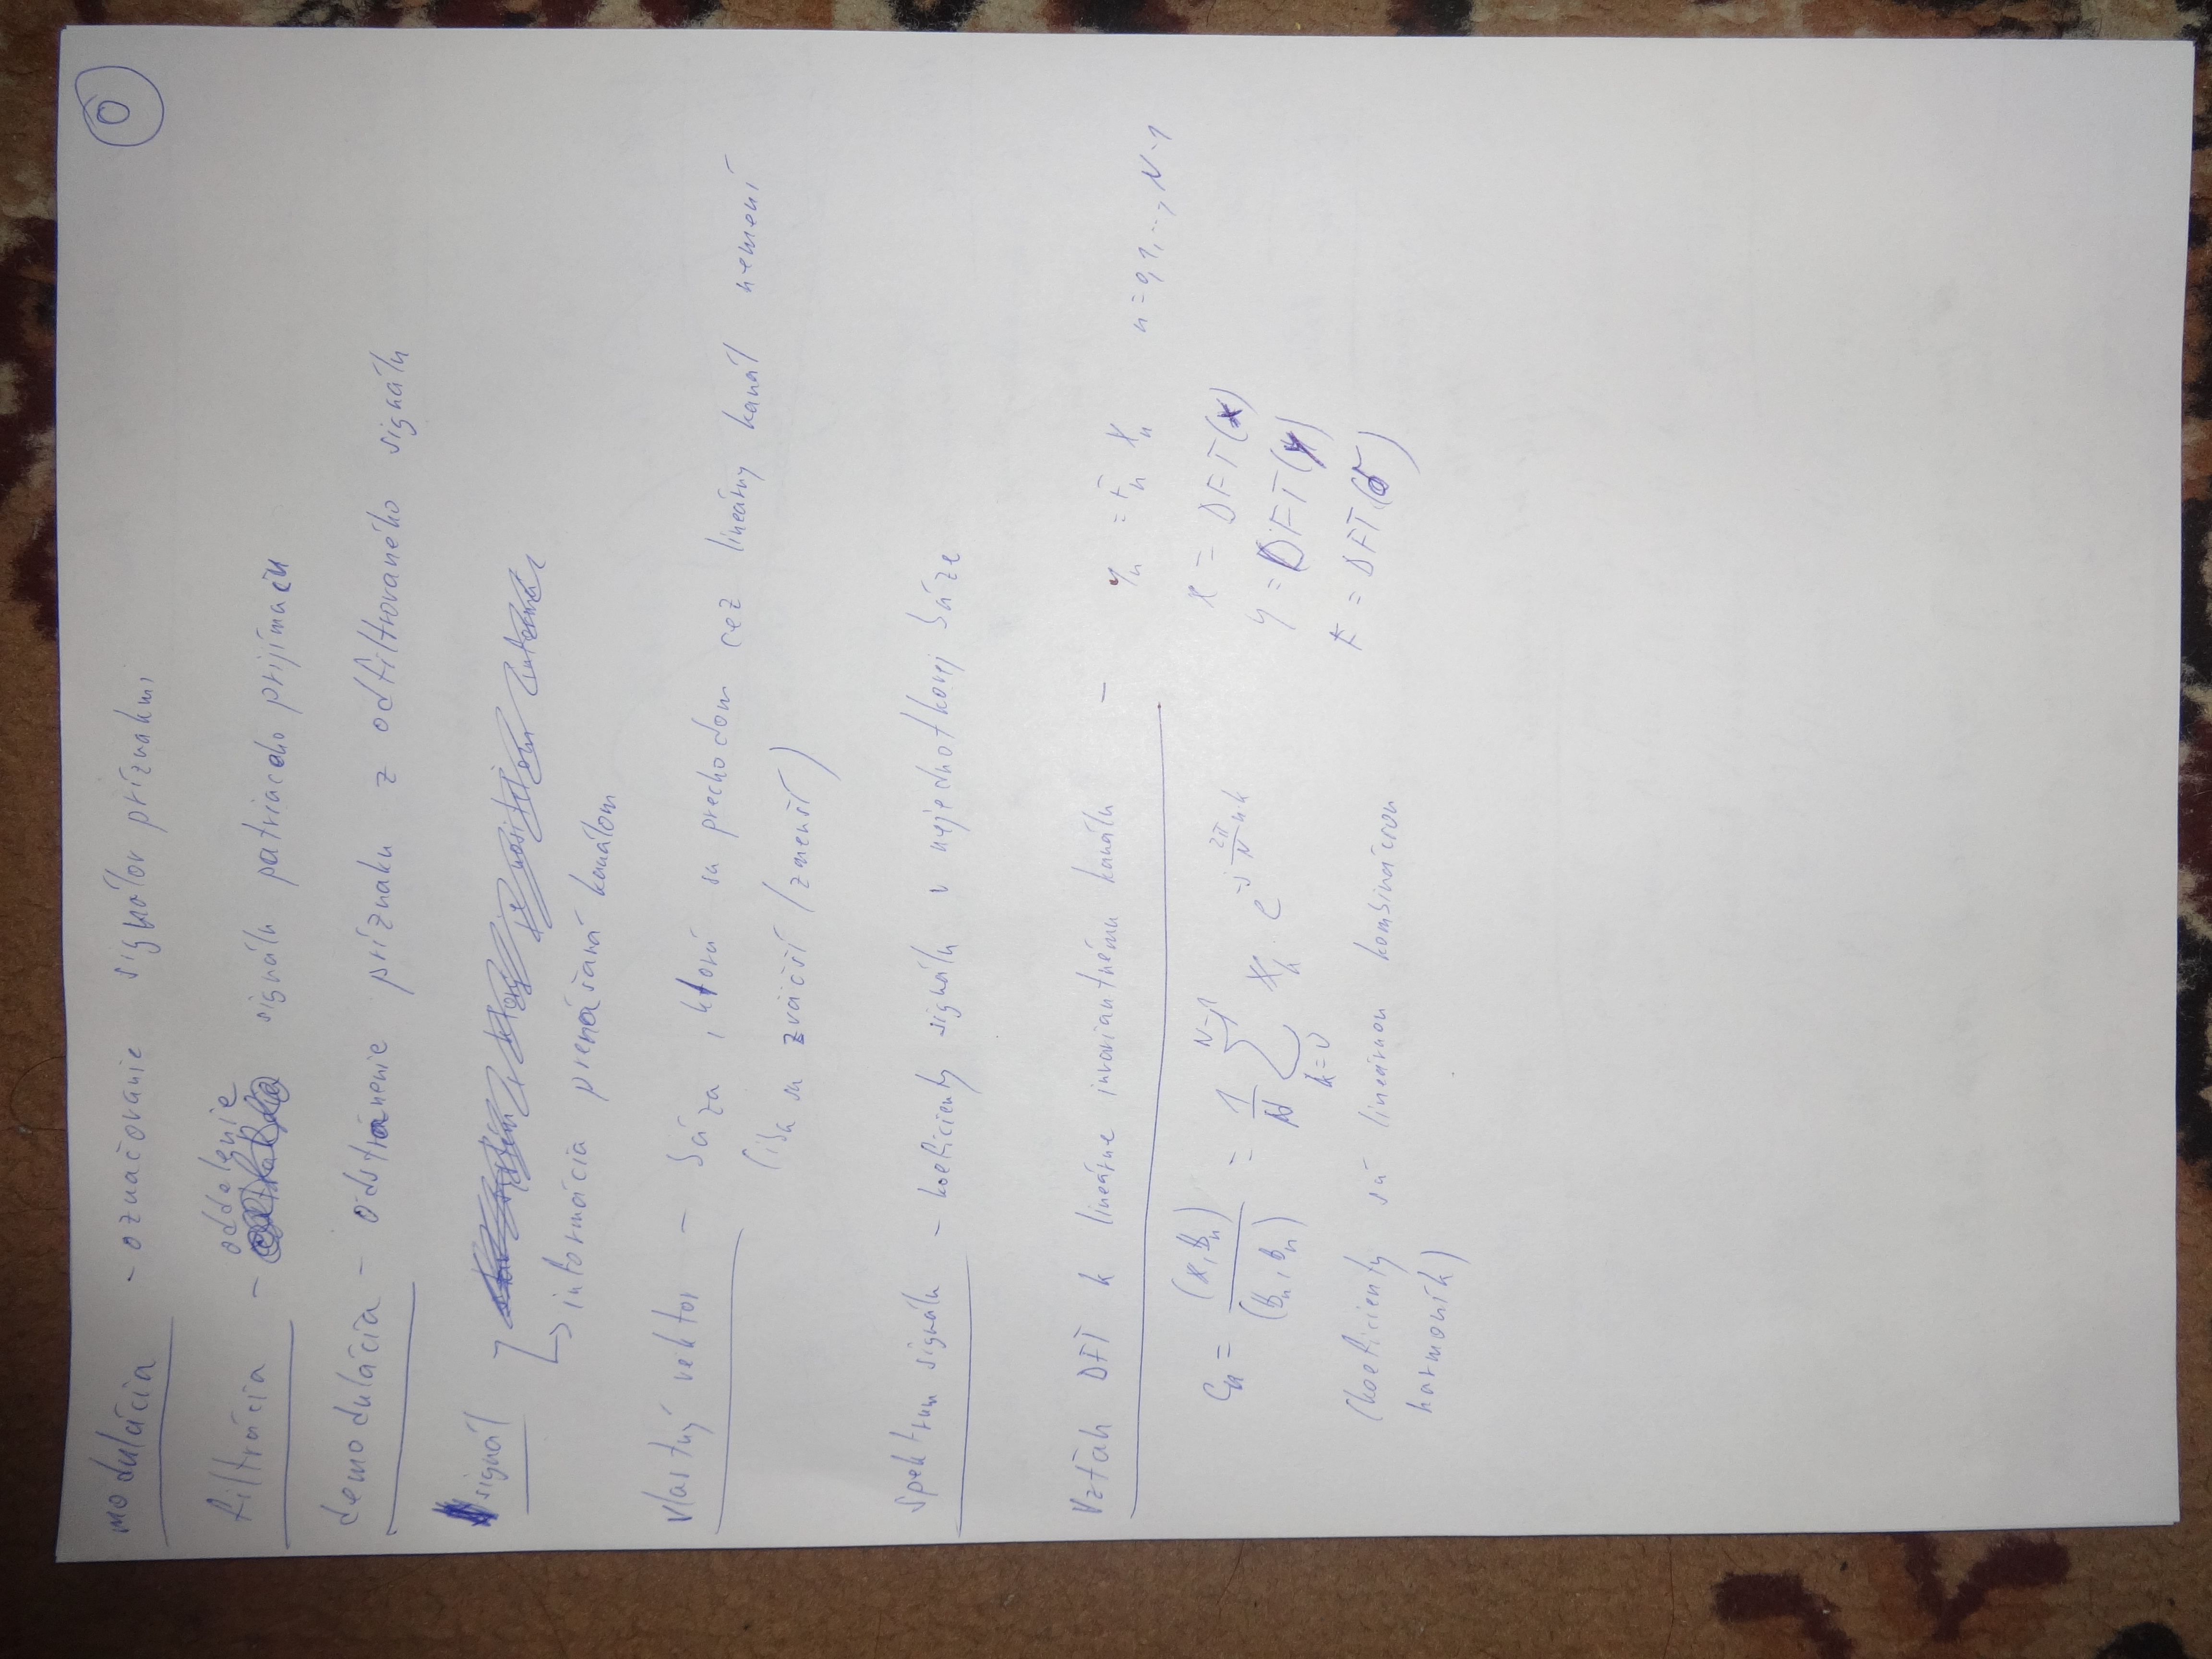 0
modulácia - označovanie signálov príznakmi
oddelenie
filtrácia - signálu patriaceho prijímaču
demodulácia - odstránenie príznaku z odfiltrovaného signálu
signál
informácia prenášaná kanálom
vlastný vektor - báza, ktorá sa prechodom cez lineárny kanál nemení
(iba sa zväčší / zmenší)
spektrum signálu - koeficienty signálu v nejednotkovej báze
Vzťah DFT k lineárne invariantnému kanálu - Yₙ = Fₙ Xₙ n=0,1,..., N-1
cₙ = (x,bₙ)/(bₙ,bₙ) = 1/N ∑_{k=0}^{N-1} xₖ · e^{-j 2π/N n·k}
X = DFT(x)
Y = DFT(y)
F = DFT(f)
(koeficienty sú lineárnou kombináciou
harmoník)